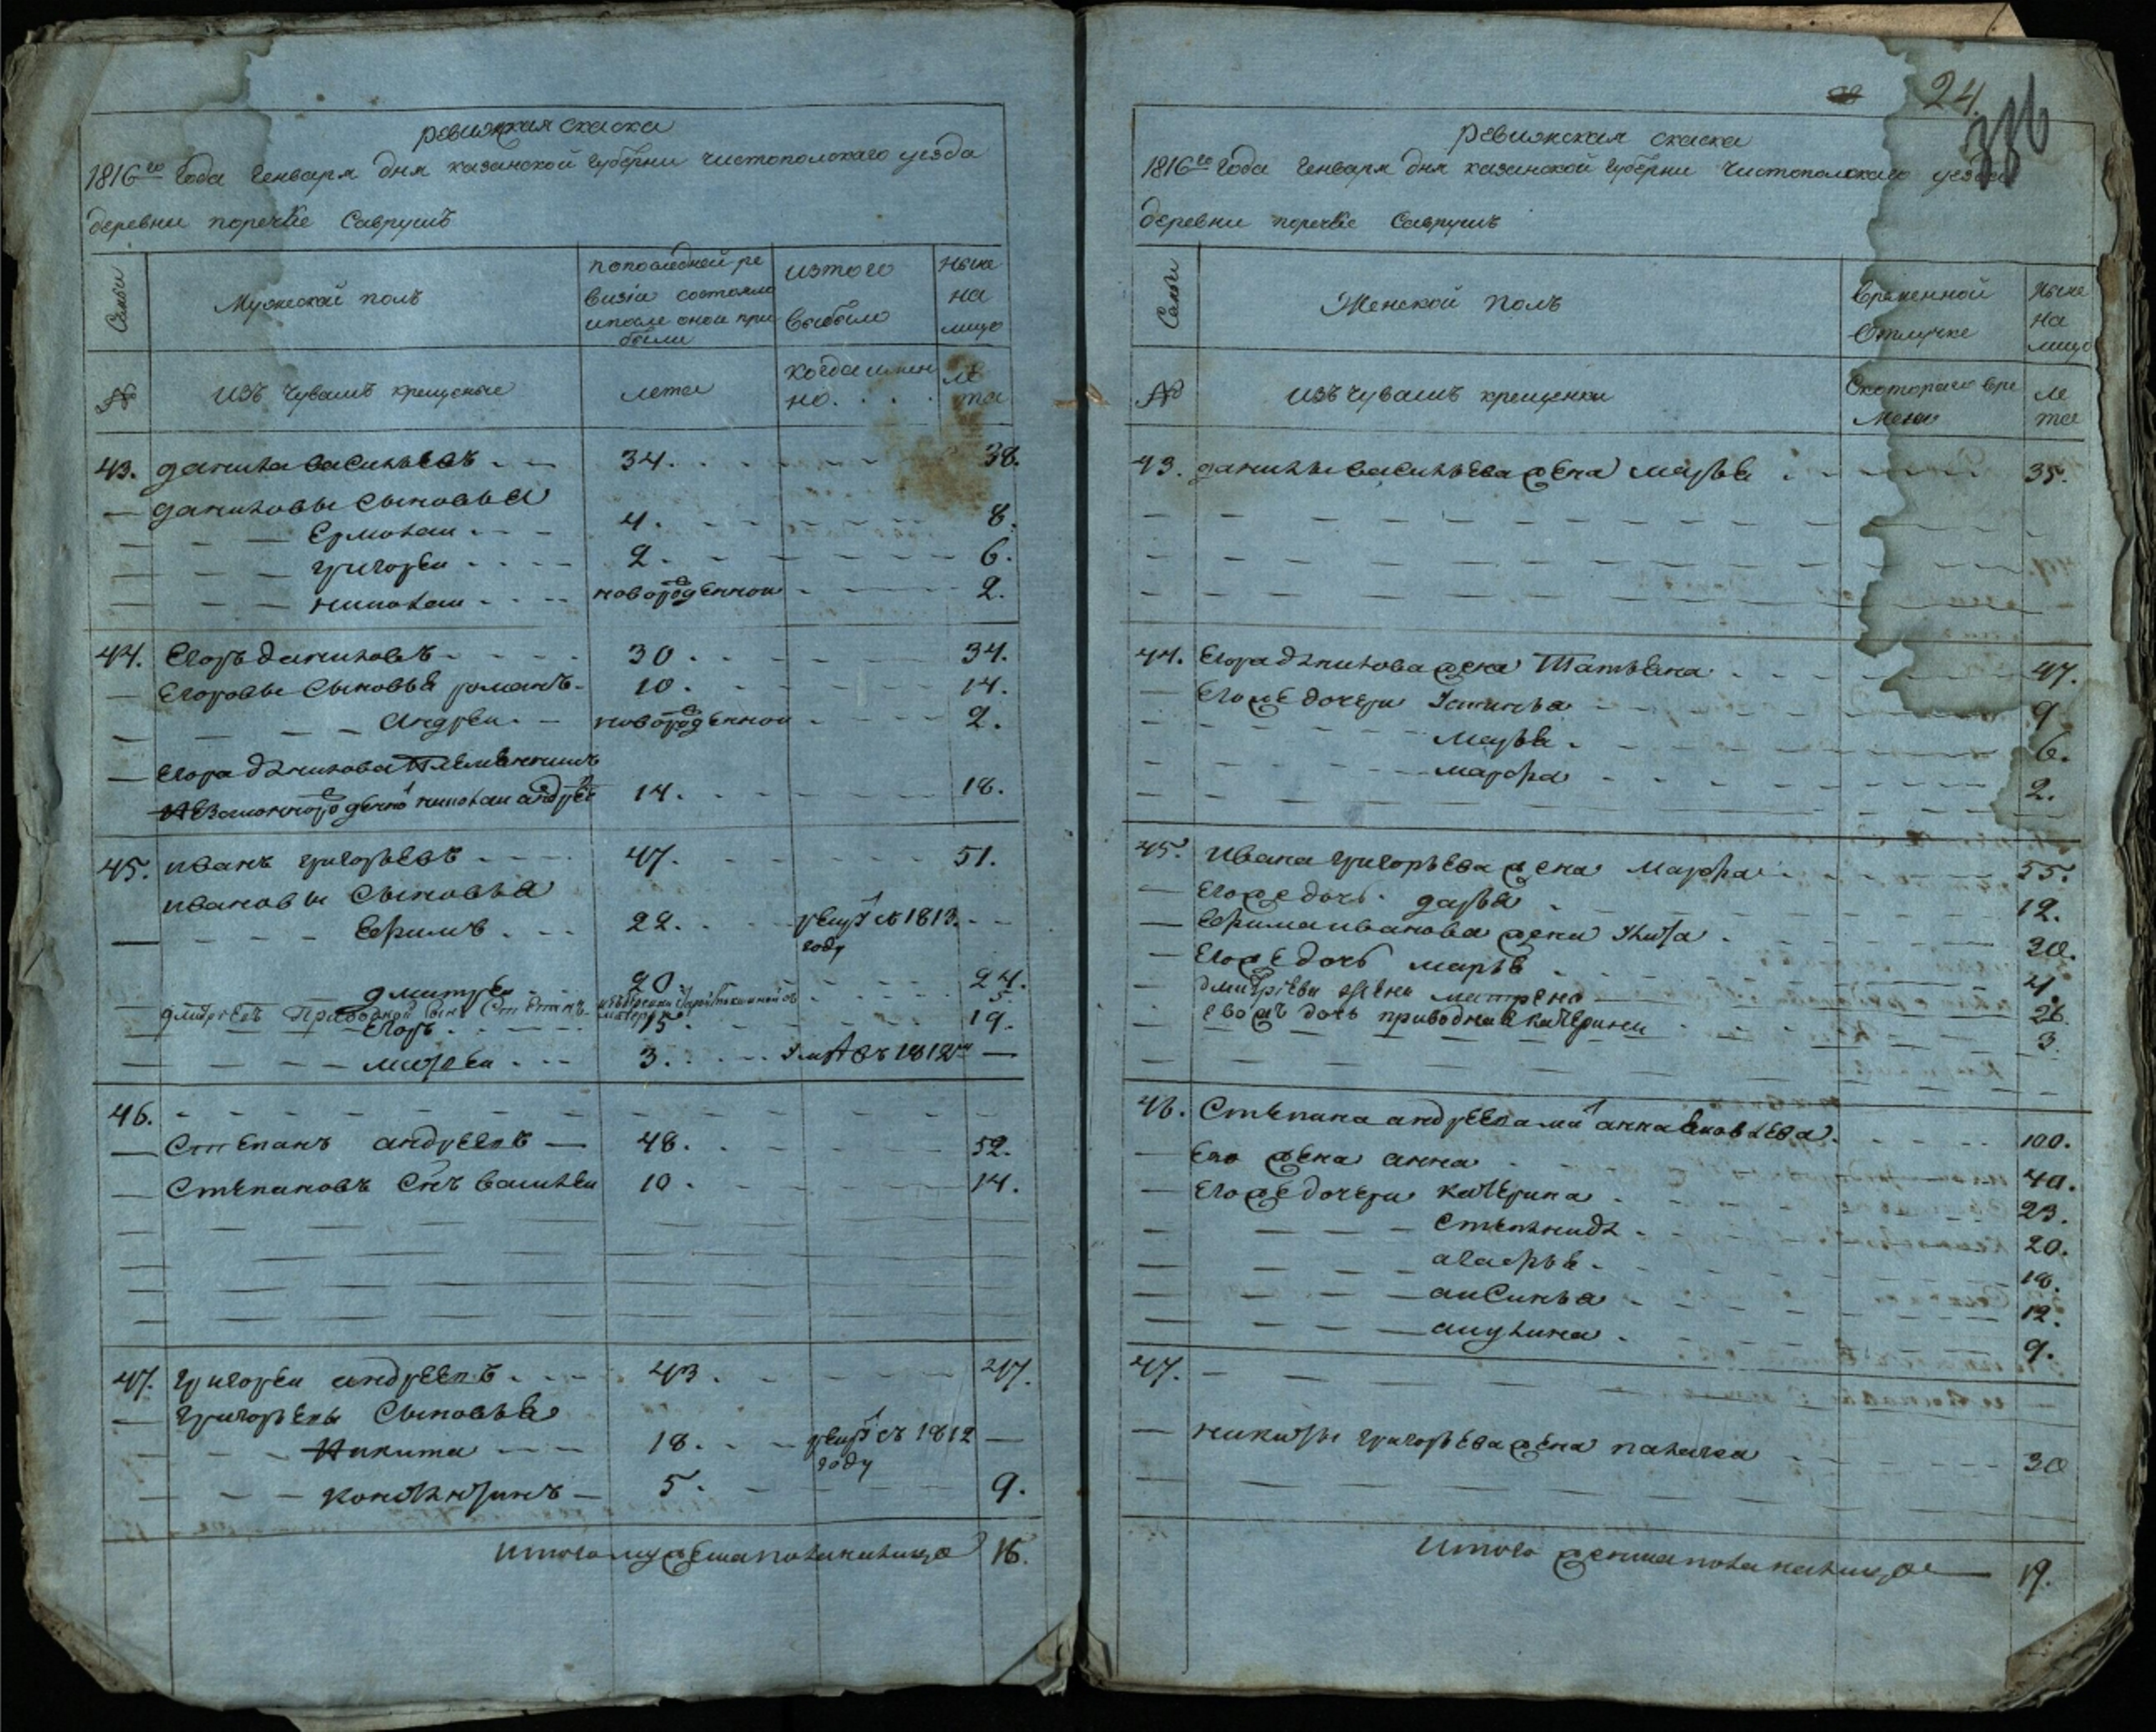 ревизская скаска
1816го Года Генваря дня казанской губерни чистополскаго уезда
деревни поречке Саврушъ
Семьи
Мужеской полъ
попоследней ре
визiи состояло
ипосле оной при
были
изтого
выбыло
Ныне
на
лицо
№
изъ чувашъ крещеные
лета
когдаимен
но.
ле
та
43. данила васильевъ 34. 38.
даниловы сыновья
Ермолаи 4. 8.
григореи 2. 6.
николаи новорожденнои 2.
44. Егоръ даниловъ 30. 34.
Егоровы сыновья романъ 10. 14.
Андреи новорожденнои 2.
Егора данилова племянникъ
незаконнорожденно николаи андреi 14. 18.
45. иванъ григорьевъ 47. 51.
ивановы сыновья
Ефимъ 22. рекрутъ 1813.
году
дмитреи 20. 24.
дмитреевъ Приводной сынъ Степанъ 5.
Егоръ 15. 19.
матвеи 3. умре въ 1812м
46.
Степанъ андреевъ 48. 52.
Степановъ Снъ василеи 10. 14.
47. григореи андреевъ 43. 47.
григорьевы Сыновья
Никита 18. рекрутъ 1812
году
констянтинъ 5. 9.
итого мужеска пола налицо 16.
24.
336
ревизская скаска
1816го Года Генваря дня казанской губерни Чистополскаго уезда
деревни поречке Саврушъ
Семьи
Женской Полъ
временной
Отлучке
Ныне
на
лицо
№
изъ чувашъ крещенки
Скотораго вре
мени
ле
та
43. данилы васильева жена марья 35.
44. Егора данилова жена Татьяна 47.
Егоже дочери Устинья 9
марья 6.
марфа 2.
45. ивана григорьева жена Марфа 55.
Егоже дочь дарья 12.
Ефима иванова жена Улита 30.
Егоже дочь марья 4
дмитрева жена матрена 26.
Евожъ дочь приводная катерина 3.
46. Степана андреева мать анна яковлева 100.
Его жена анна 40.
Егоже дочери катерина 23.
степанида 20.
агафья 18.
аксинья 12.
акулина 9.
47.
никиты григорьева жена палагея 30
итого женска пола налицо 19.